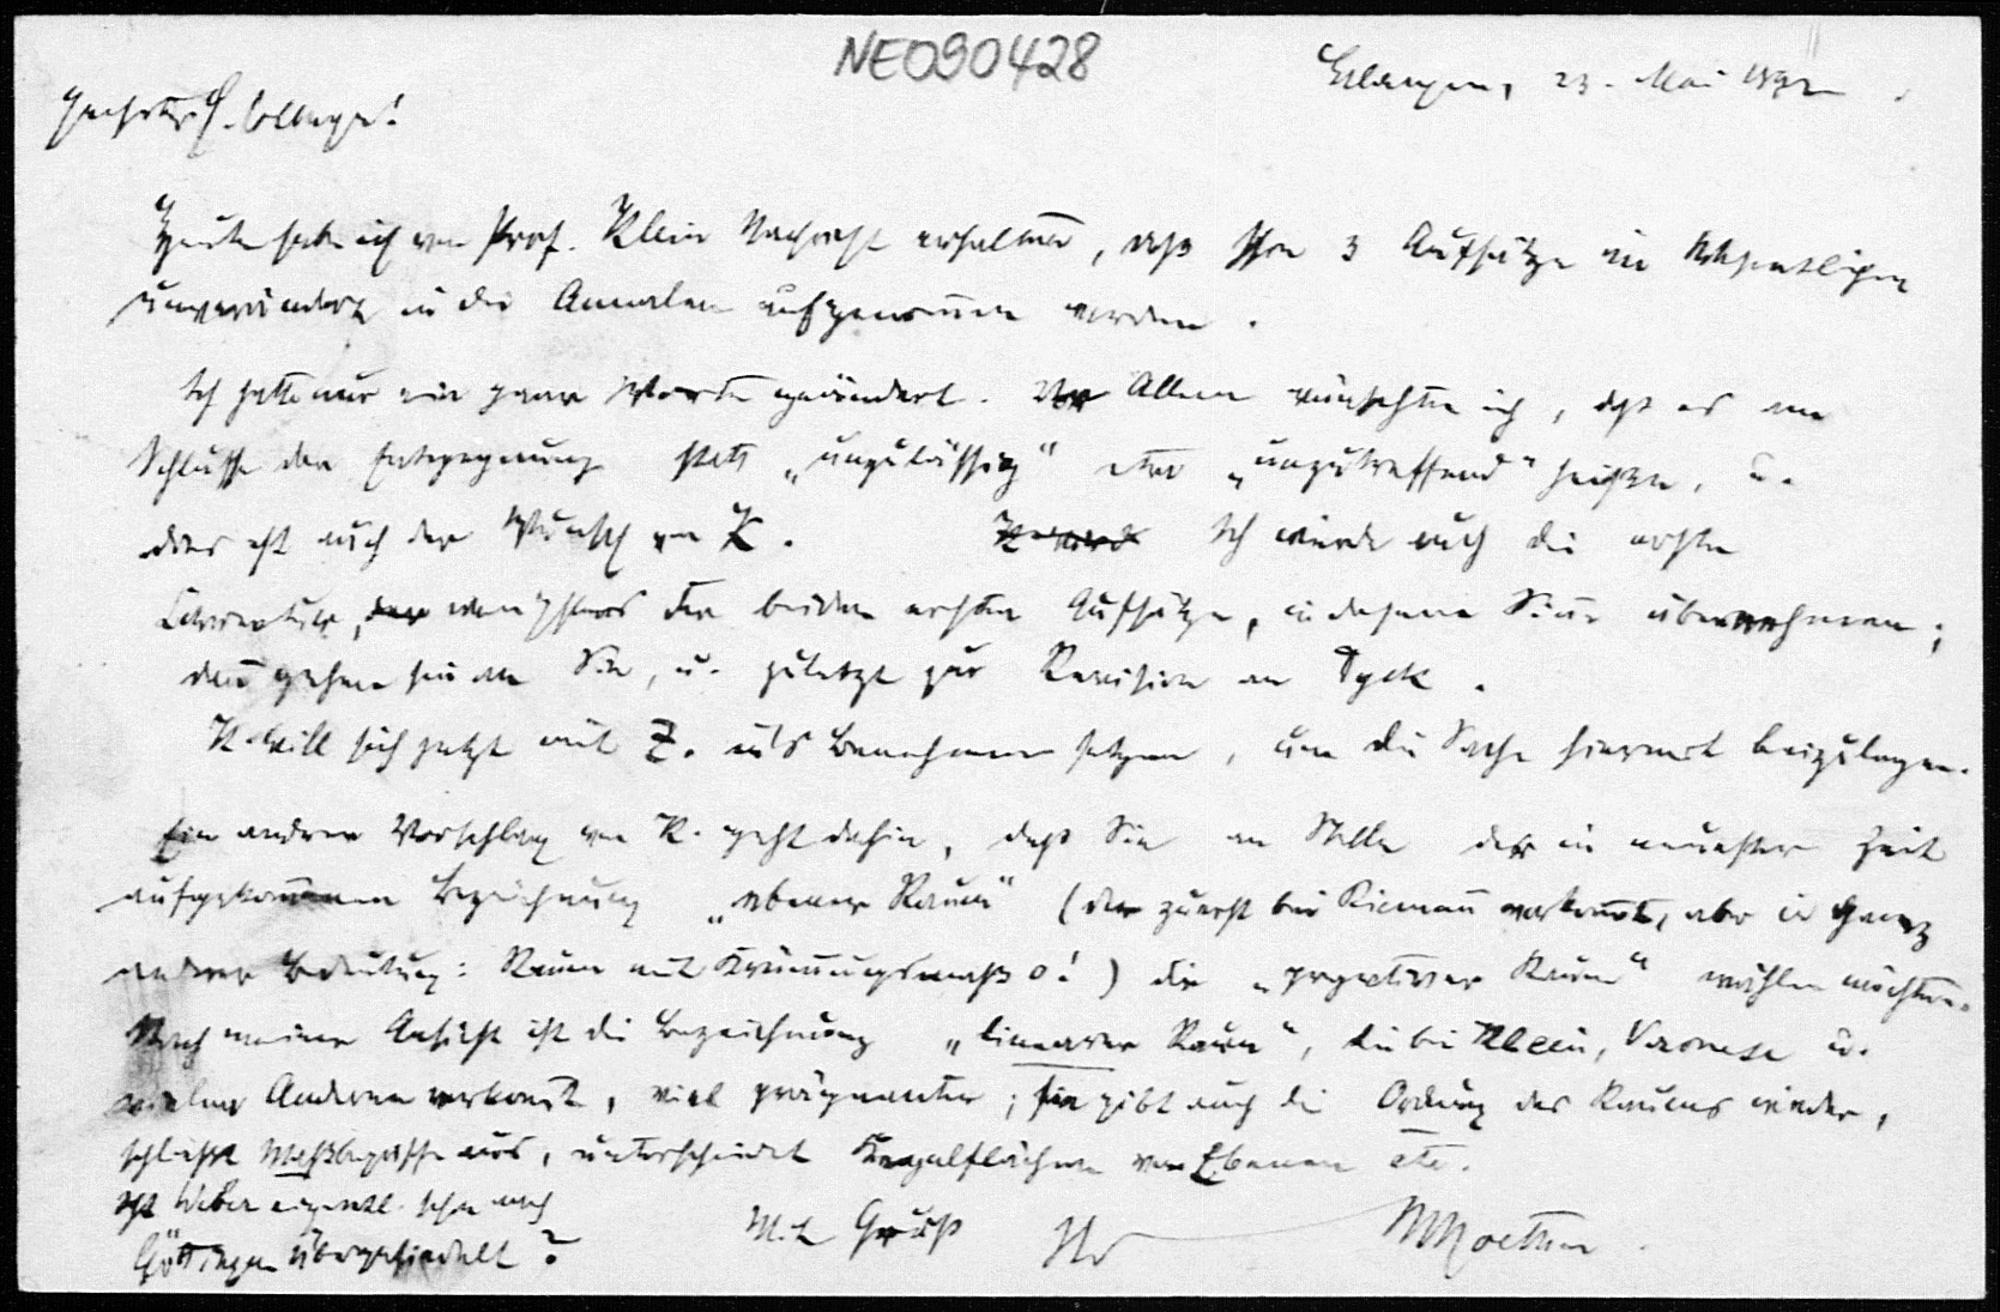 NE090428
Erlangen, 23. Mai 1892
Geehrter H. College!
Heute habe ich von Prof. Klein Nachricht erhalten, daß Ihre 3 Aufsätze im Wesentlichen
unverändert in die Annalen aufgenommen werden.
Ich hatte nur ein paar Worte geändert. Vor Allem wünschte ich, daß es am
Schlusse der Entgegnung statt „unzulässig" etwa „unzutreffend" heiße, u.
dies ist auch der Wunsch von K. Ich würde auch die erste
Correctur, wenigstens der beiden ersten Aufsätze, in diesem Sinne übernehmen;
dann gehen sie an Sie, u. zuletzt zur Revision an Dyck.
K. will sich jetzt mit Z. in's Benehmen setzen, um die Sache hiermit beizulegen.
Ein anderer Vorschlag von K. geht dahin, daß Sie an Stelle der in neuester Zeit
aufgekommenen Bezeichnung „ebener Raum" (der zuerst bei Riemann vorkommt, aber in ganz
anderer Bedeutung: Raum mit Krümmungsmaß 0!) die „projectiver Raum" wählen möchten.
Nach meiner Ansicht ist die Bezeichnung „linearer Raum", die bei Klein, Veronese u.
vielen Anderen vorkommt, viel prägnanter; sie gibt auch die Ordnung des Raumes wieder,
schließt Maßbegriffe aus, unterscheidet Kegelflächen von Ebenen etc.
Ist Weber eigentl. schon nach
Göttingen übergesiedelt?
Mit Gruß Ihr MNoether